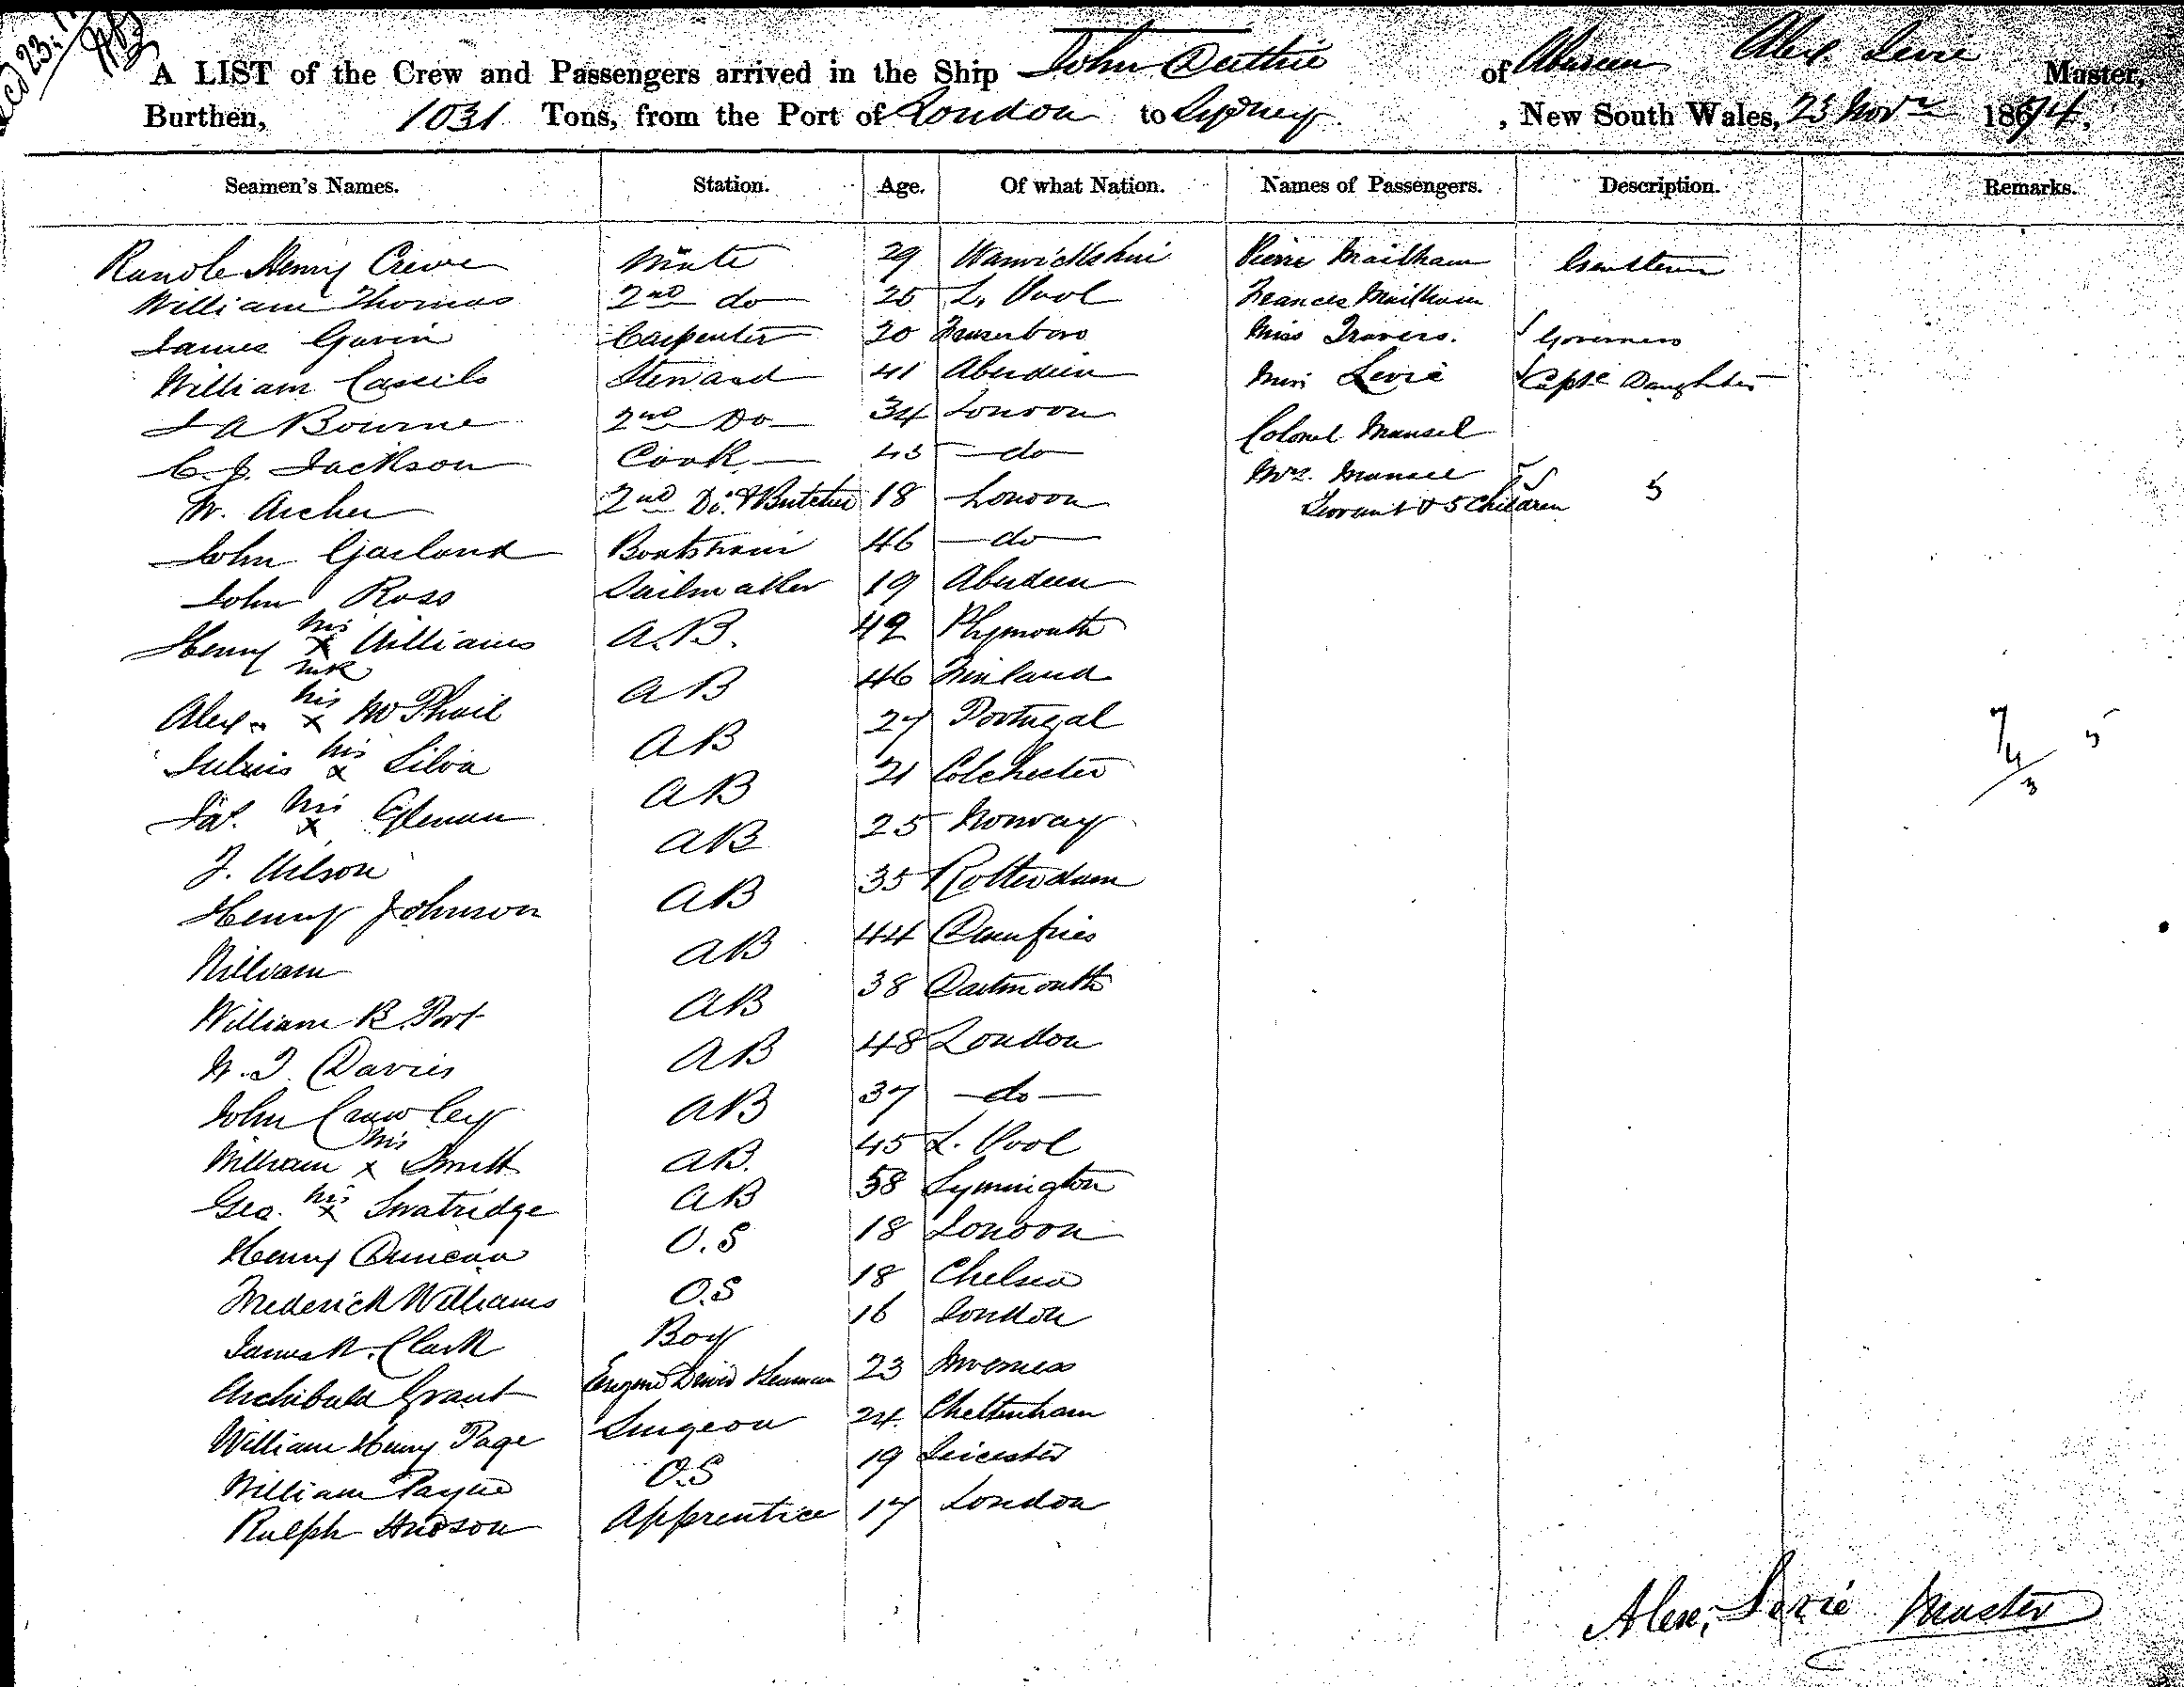 A LIST of the Crew and Passengers arrived in the Ship John Duthie of Aberdeen Alex. Levie Master,
Burthen, 1031 Tons, from the Port of London to Sydney , New South Wales, 23 Novr 1874,
Seamen's Names. Station. Age. Of what Nation. Names of Passengers. Description. Remarks.
Randle Henry Crewe Mate 29 Warwickshire Pierre Mailham Gentleman
William Thomas 2nd do 25 L. Pool Frances Mailham
James Gavin Carpenter 20 Fraserboro Miss Travers. Governess
William Cassils Steward 41 Aberdeen Miss Levie Capts Daughter
J A Bourne 2nd Do 34 London Colonel Mansel
C. J. Jackson Cook 45 do Mrs. Mansel
W. Archer 2nd Do. & Butcher 18 London Servant & 5 Children 5
John Garland Boatswain 46 do
John Ross Sailmaker 19 Aberdeen
Henry his x mk Williams A.B. 49 Plymouth
Alex. his x McPhail AB 46 Finland
Julius his x Silva AB 27 Portugal
Jas. his x Gleman AB 21 Colchester
J. Nelson AB 25 Norway
Henry Johnson AB 35 Rotterdam
William AB 44 Dumfries
William B. Port AB 38 Dartmouth
W. J. Davies AB 48 London
John Crawley AB 37 do
William his x Smith AB. 45 L. Pool
Geo. his x Swatridge AB 58 Lymington
Henry Duncan O.S 18 London
Frederick Williams O.S 18 Chelsea
James R. Clark Boy 16 London
Archibald Grant Engine Driver Seaman 23 Inverness
William Henry Page Surgeon 24 Cheltenham
William Payne O.S 19 Leicester
Ralph Hudson Apprentice 17 London
Alex. Levie Master